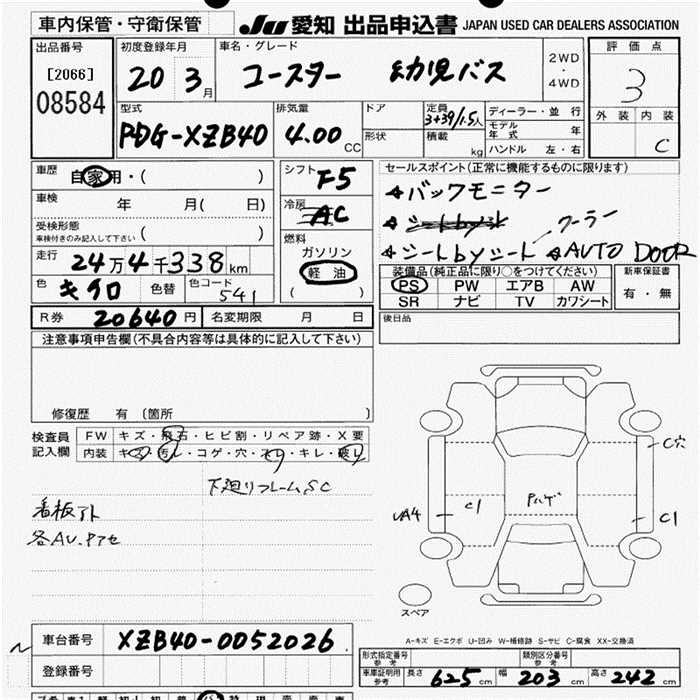 車内保管・守衛保管 JU 愛知 出品申込書 JAPAN USED CAR DEALERS ASSOCIATION
出品番号 [2066] 08584
初度登録年月 20 3月
車名・グレード コースター 幼児バス
2WD・4WD
評価点 3
外装 内装 C
型式 PDG-XZB40
排気量 4.00 CC
ドア 形状
定員 3+39/1.5人
積載 kg
ディーラー・並行
モデル年式 年
ハンドル 左・右
車歴 自家用・( )
車検 年 月( 日)
受検形態 車検付きのみ記入して下さい ( )
走行 24万4千338km
色 キイロ 色替 色コード 541
シフト F5
冷房 AC
燃料 ガソリン 軽油 ( )
セールスポイント(正常に機能するものに限ります)
バックモニター
シートbyシート クーラー AUTO DOOR
装備品(純正品に限り○をつけてください)
PS PW エアB AW
SR ナビ TV カワシート
新車保証書 有・無
R券 20640円 名変期限 月 日
後日品
注意事項申告欄(不具合内容等は具体的に記入して下さい)
修復歴 有 [箇所 ]
検査員記入欄
FW キズ・飛石・ヒビ割・リペア跡・X要
内装 キズ・汚レ・コゲ・穴・スレ・キレ・破レ
下廻リフレームSC
看板アト
C穴
C1
C1
スペア
A-キズ E-エクボ U-凹み W-補修跡 S-サビ C-腐食 XX-交換済
車台番号 XZB40-0052026
登録番号
形式指定番号 参考 類別区分番号 参考
車庫証明用 参考 長さ 625cm 幅 203cm 高さ 242cm